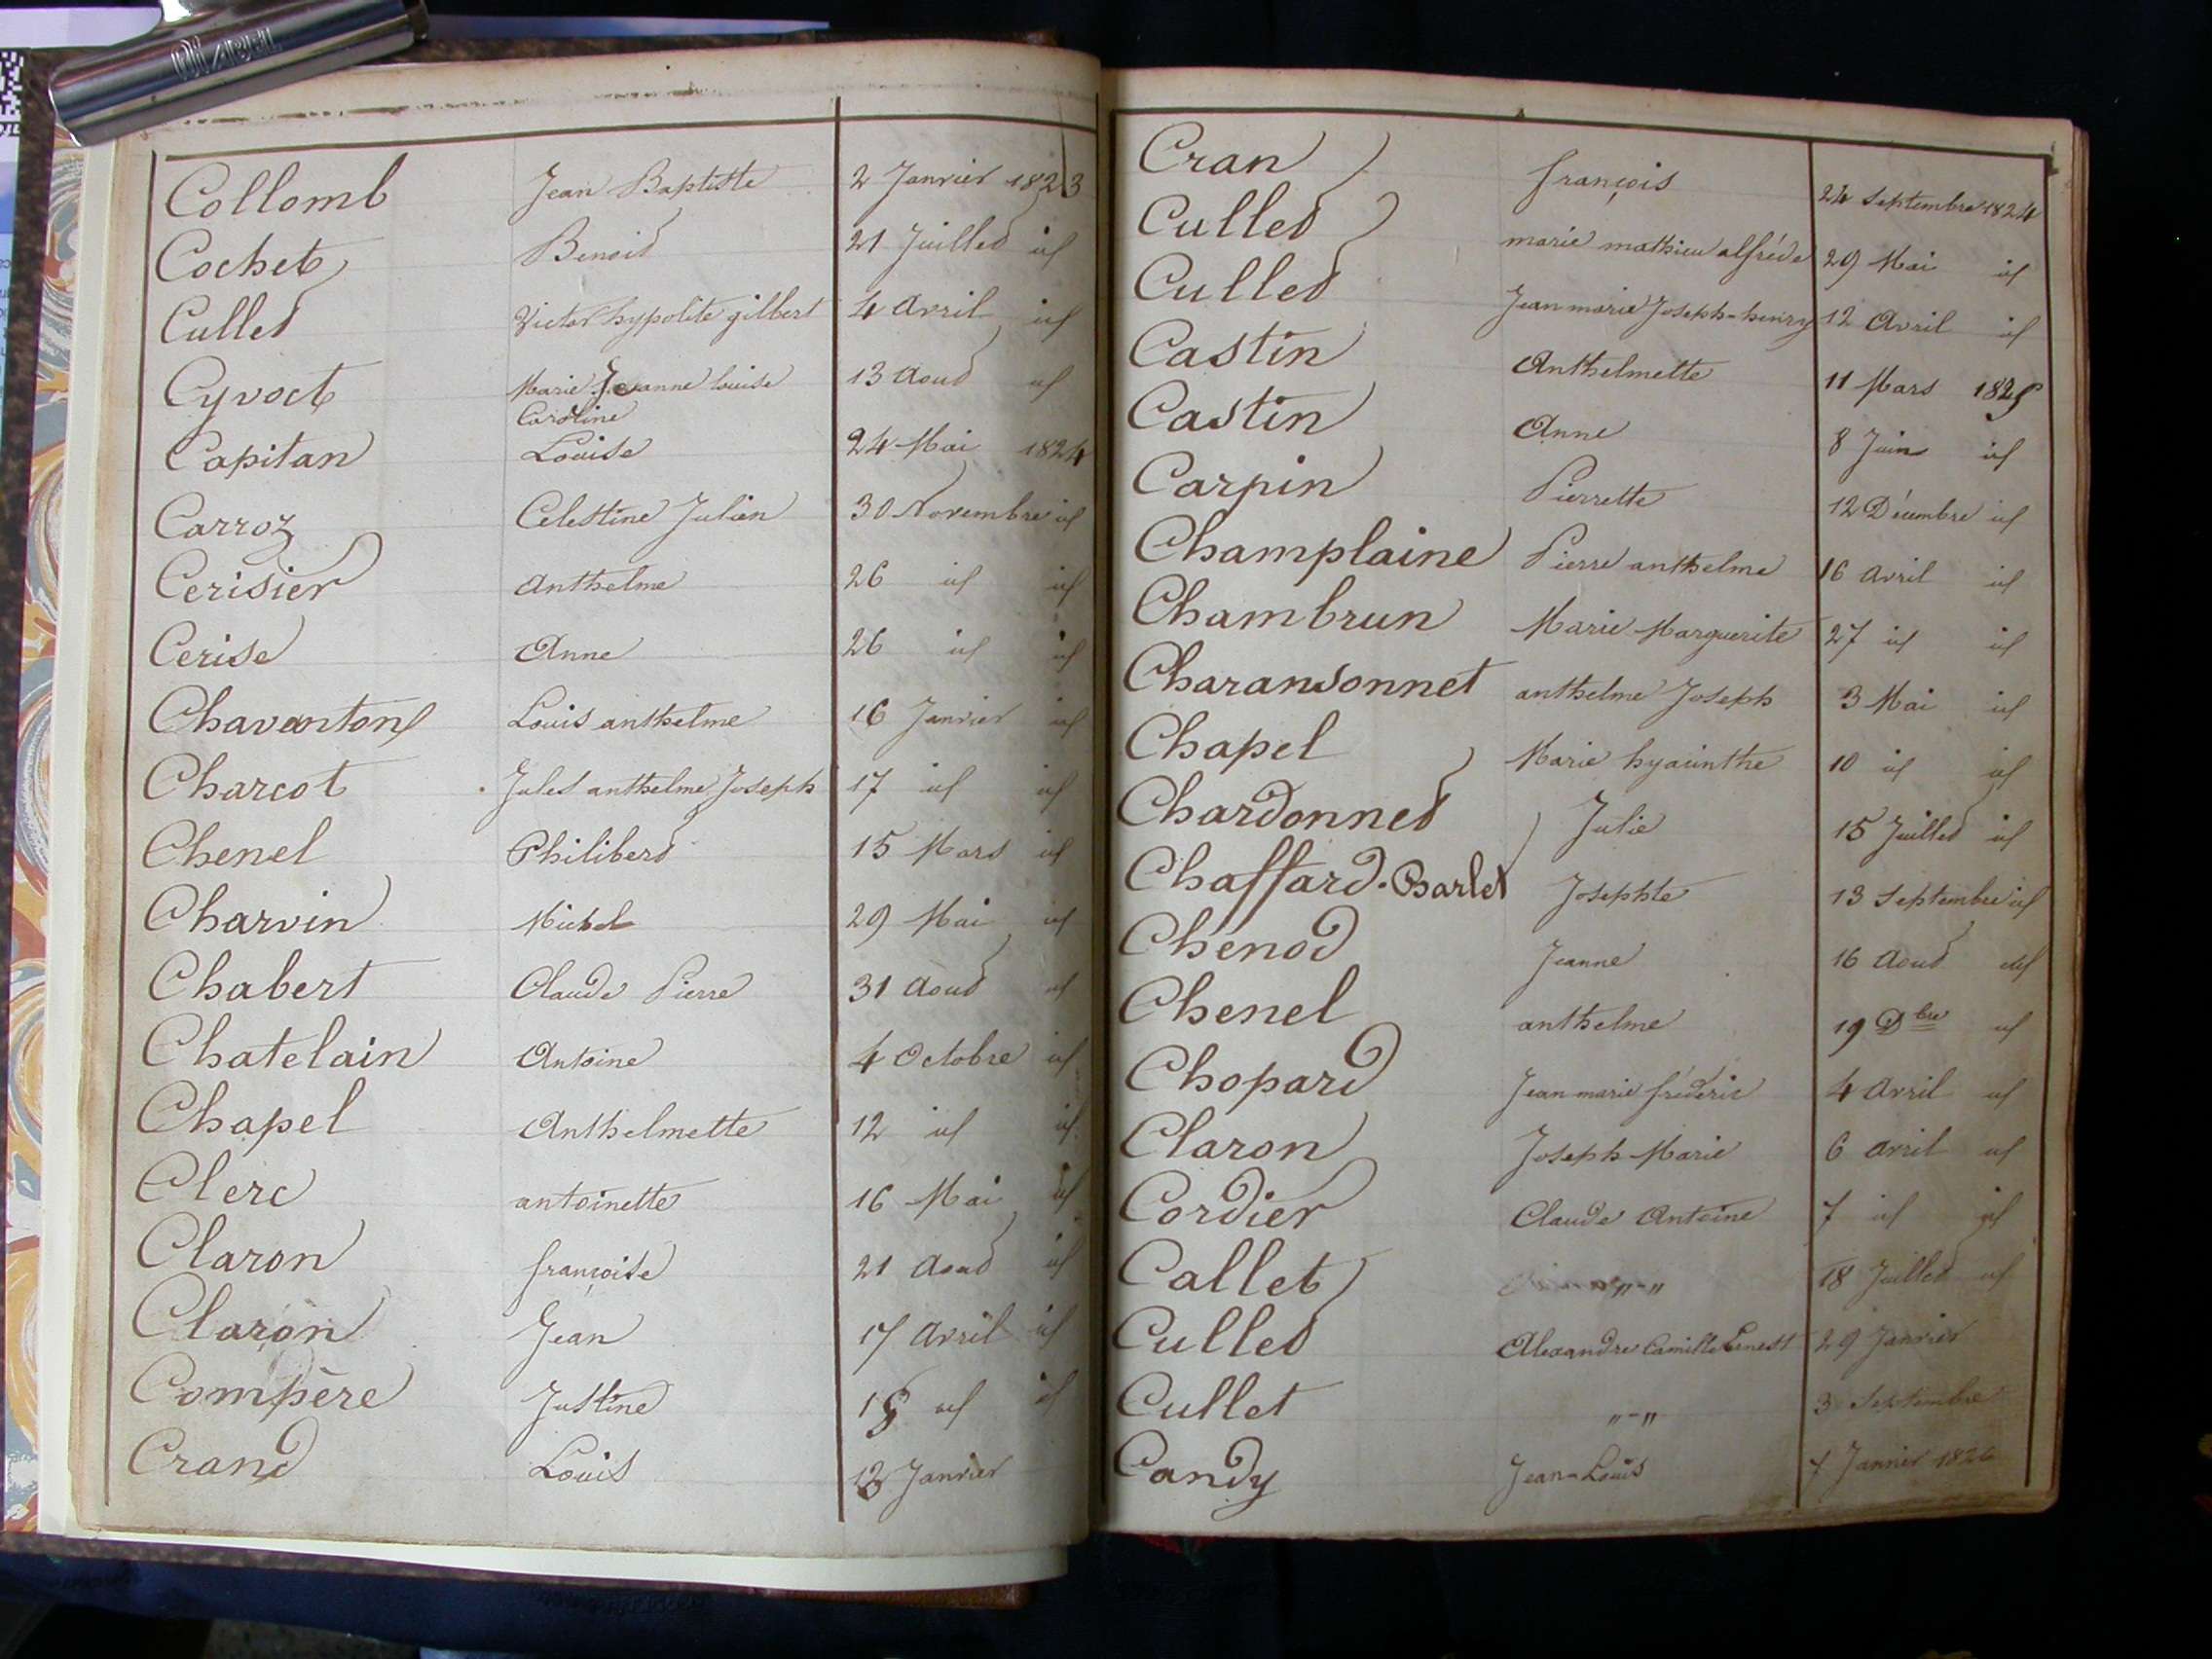 DIABEL
Collomb Jean Baptiste 2 Janvier 1823
Cochet Benoit 21 Juillet id
Cullet Victor hypolite gilbert 4 avril id
Cyvoct Marie Jeanne louise 13 Aout id
Caroline
Capitan Louise 24 Mai 1824
Carroz Celestine Julien 30 Novembre id
Cerisier Anthelme 26 id id
Cerise Anne 26 id id
Chavanton Louis anthelme 16 Janvier id
Charcot Jules anthelme Joseph 17 id id
Chenel Philibert 15 Mars id
Charvin Michel 29 Mai id
Chabert Claude Pierre 31 Aout id
Chatelain Antoine 4 Octobre id
Chapel Anthelmette 12 id id
Clerc antoinette 16 Mai id
Claron françoise 21 Aout id
Claron Jean 17 Avril id
Compère Justine id id
Crand Louis Janvier
Cran françois 24 Septembre 1824
Cullet marie mathieu alfréde 29 Mai id
Cullet Jean marie Joseph-henry 12 Avril id
Castin Anthelmette 11 Mars 1825
Castin Anne 8 Juin id
Carpin Pierrette 12 Décembre id
Champlaine Pierre anthelme 16 avril id
Chambrun Marie Marguerite 27 id id
Charansonnet anthelme Joseph 3 Mai id
Chapel Marie hyacinthe 10 id id
Chardonnet Julie 15 Juillet id
Chaffard-Barlet Josephte 13 Septembre id
Chenod Jeanne 16 Aout id
Chenel anthelme 19 Dbre id
Chopard Jean marie fréderic 4 avril id
Claron Joseph-Marie 6 avril id
Cordier Claude Antoine 7 id id
Callet "-" 18 Juillet id
Cullet Alexandre Camille Ernest 29 Janvier
Cullet "-" 3 Septembre
Candy Jean-Louis 7 Janvier 1826